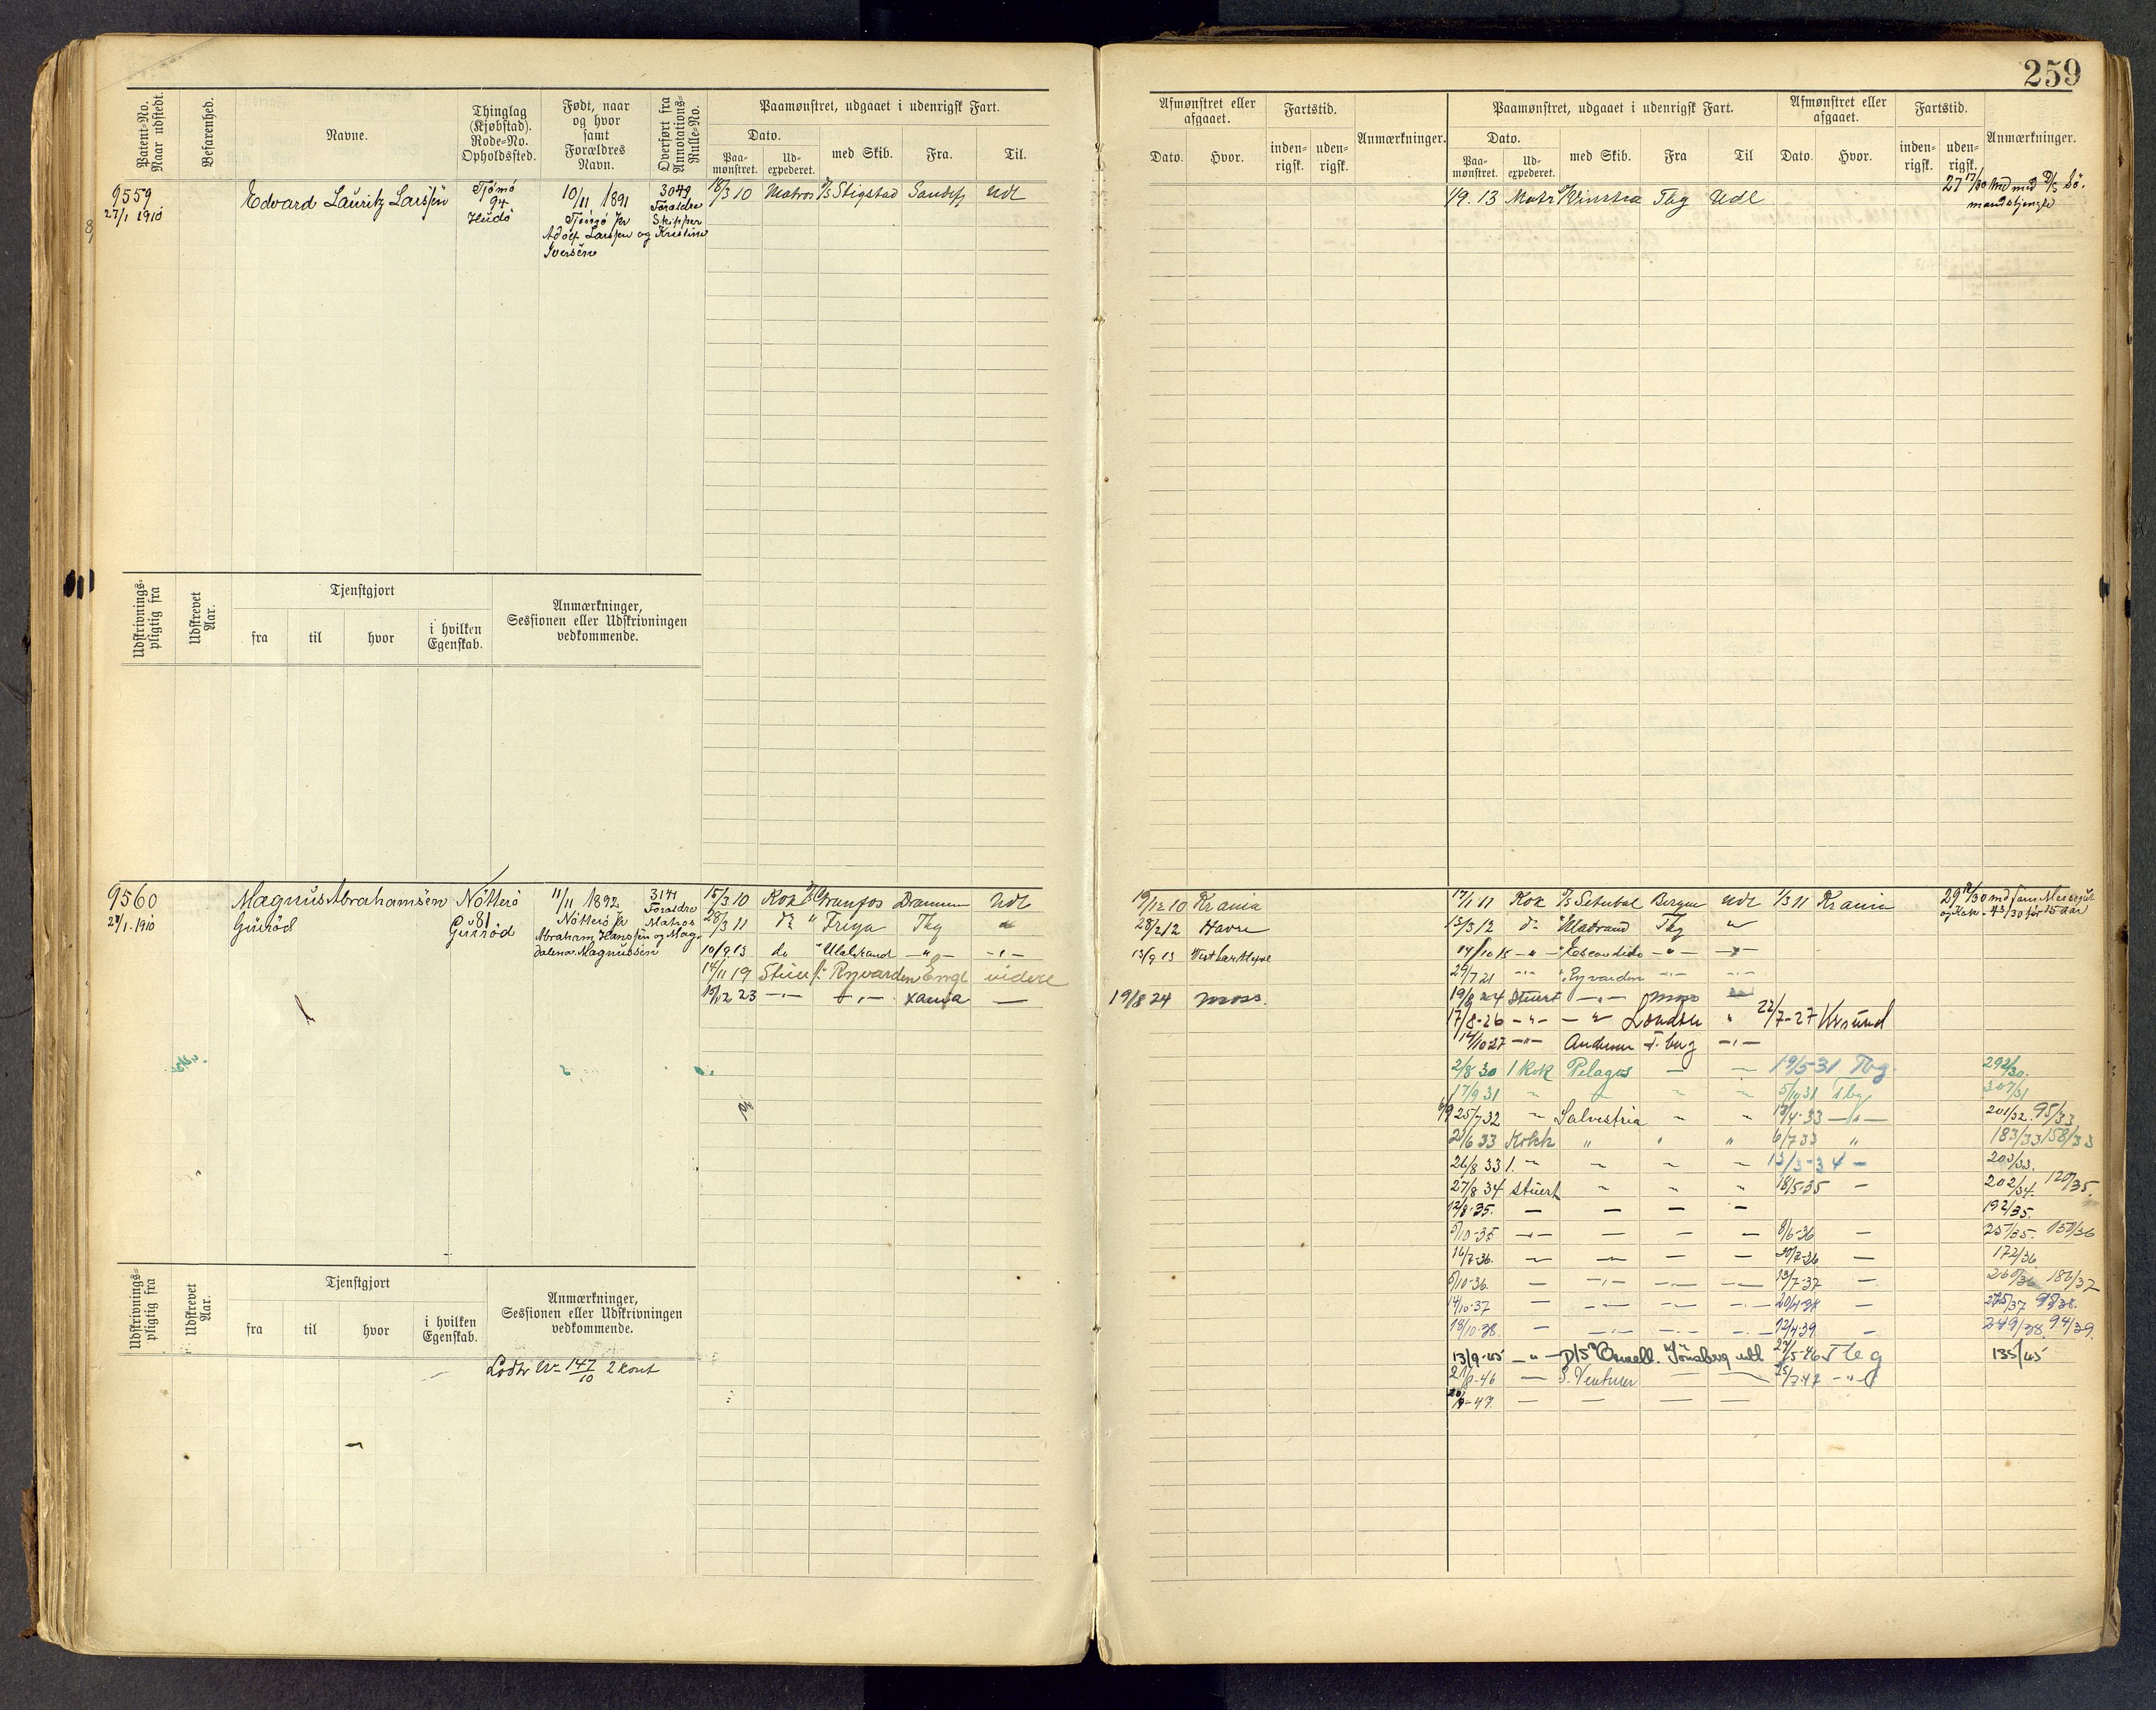 259
Patent-No. Naar udstedt.
Befarenhed.
Navne.
Thinglag (Kjøbstad). Rode-No. Opholdssted.
Født, naar og hvor samt Forældres Navn.
Overført fra Annotations-Rulle-No.
Paamønstret, udgaaet i udenrigsk Fart.
Dato.
Paa-mønstret.
Ud-expederet.
med Skib.
Fra.
Til.
Afmønstret eller afgaaet.
Dato.
Hvor.
Fartstid.
inden-rigsk.
uden-rigsk.
Anmærkninger.
Paamønstret, udgaaet i udenrigsk Fart.
Dato.
Paa-mønstret.
Ud-expederet.
med Skib.
Fra
Til
Afmønstret eller afgaaet.
Dato.
Hvor.
Fartstid.
inden-rigsk.
uden-rigsk.
Anmærkninger.
9559
27/1 1910
Edvard Lauritz Larssen
Tjömö
94
Hudö
10/11 1891
Tjömö Pr
Adolf Larssen og Kristine
Iversen
3049
Foraldre
Skipper
18/3 10 Matros Stigstad Sandefj Udl
1/9. 13 Matr Vinstra Tbg Udl
Udskrivnings-pligtig fra
Udskrevet Aar.
Tjenstgjort
fra
til
hvor
i hvilken Egenskab.
Anmærkninger, Sessionen eller Udskrivningen vedkommende.
9560
27/1. 1910
Magnus Abrahamsen
Guirød
Nötterö
81
Guirød
11/11 1892
Nötterö Pr
Abraham Hanssen og Mag-
dalena Magnussen
3141
Foraldre
Matros
15/3 10 Kok Granfos Drammen Udl
28/3 11 do " Freya Tbg "
10/9. 13 do
14/11 19 Ryvarden Engl videre
15/12 23 Xania
19/12 10 Krania
28/2 12 Havre
13/9 13
19/8 24 Moss.
17/1 11 Kok Setubal Bergen Udl 1/3 11 Krania
13/3 12 do Tbg "
14/10 15 Escondido
29/7 21 Ryvarden
19/8 24 Stuert Moss
17/8-26 London " 22/7-27 Krsund
14/10 27 Anderson T.berg
2/8 30 1 Kok Pelagos 19/5-31 Tbg. 292/30.
17/9 31 5/10 31 Tbg 307/31
25/7 32 Salvestria 13/4-33 201/32. 95/33
21/6 33 Kokk " " " 6/7 33 " 183/33 158/33
26/8 33 1. 13/3-34 203/33.
27/8 34 Stuert 18/5 35 202/34. 120/35.
12/8-35. 192/35.
5/10-35 8/6-36 257/35. 150/36
16/7-36. 20/7-36 172/36
5/10-36 13/7-37 260/36 186/37
14/10-37 275/37 95/38.
18/10-38. 12/4 39 249/38. 94/39.
13/9-45 D/S Tönsberg utl 135/45
21/8-46 S. Venturer 25/7 47
Udskrivnings-pligtig fra
Udskrevet Aar.
Tjenstgjort
fra
til
hvor
i hvilken Egenskab.
Anmærkninger, Sessionen eller Udskrivningen vedkommende.
Lodtr No 147/10 2 kont